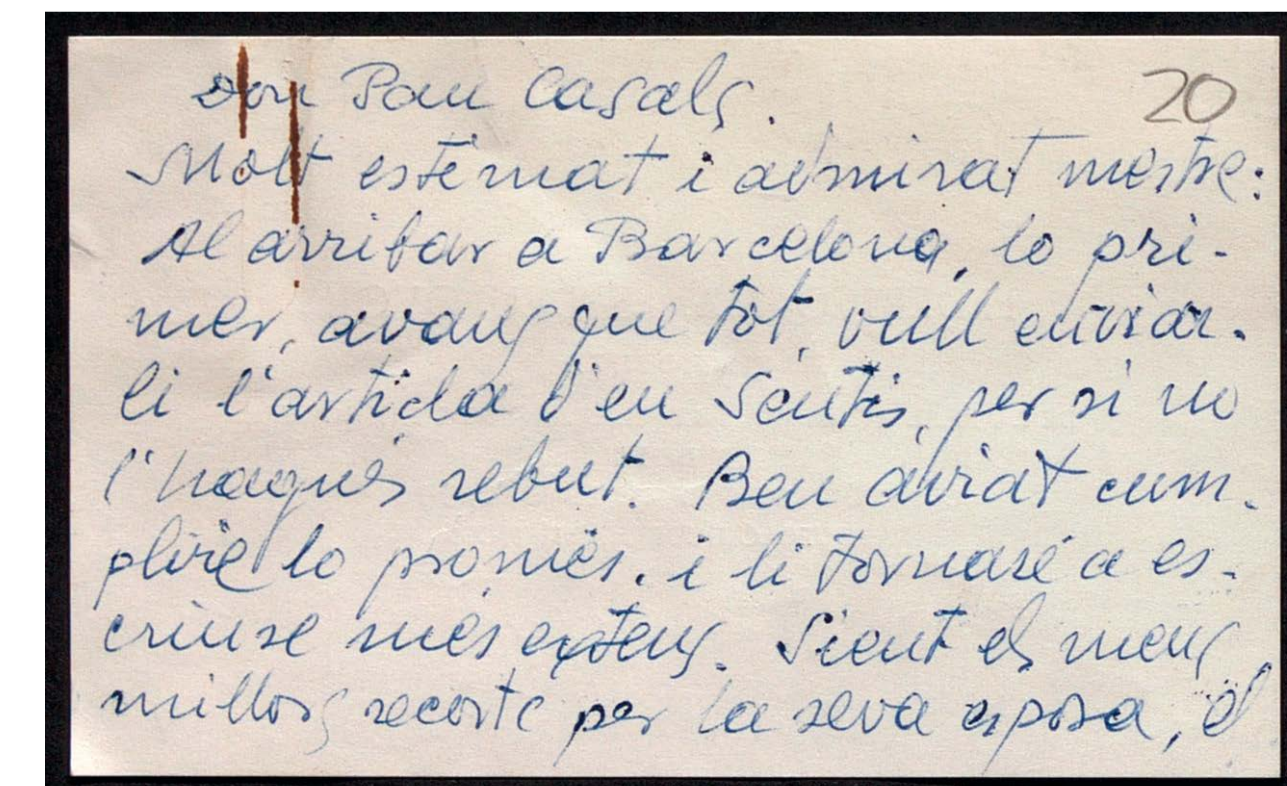 Don Pau Casals.
20
Molt estimat i admirat mestre:
Al arribar a Barcelona, lo pri-
mer, avans que tot, vull enviar-
li l'articla d'en Sentis, per si no
l'hagués rebut. Ben aviat cum-
pliré lo promés. i li tornaré a es-
criure més extens. Sient els meus
millors recorts per la seva esposa, el